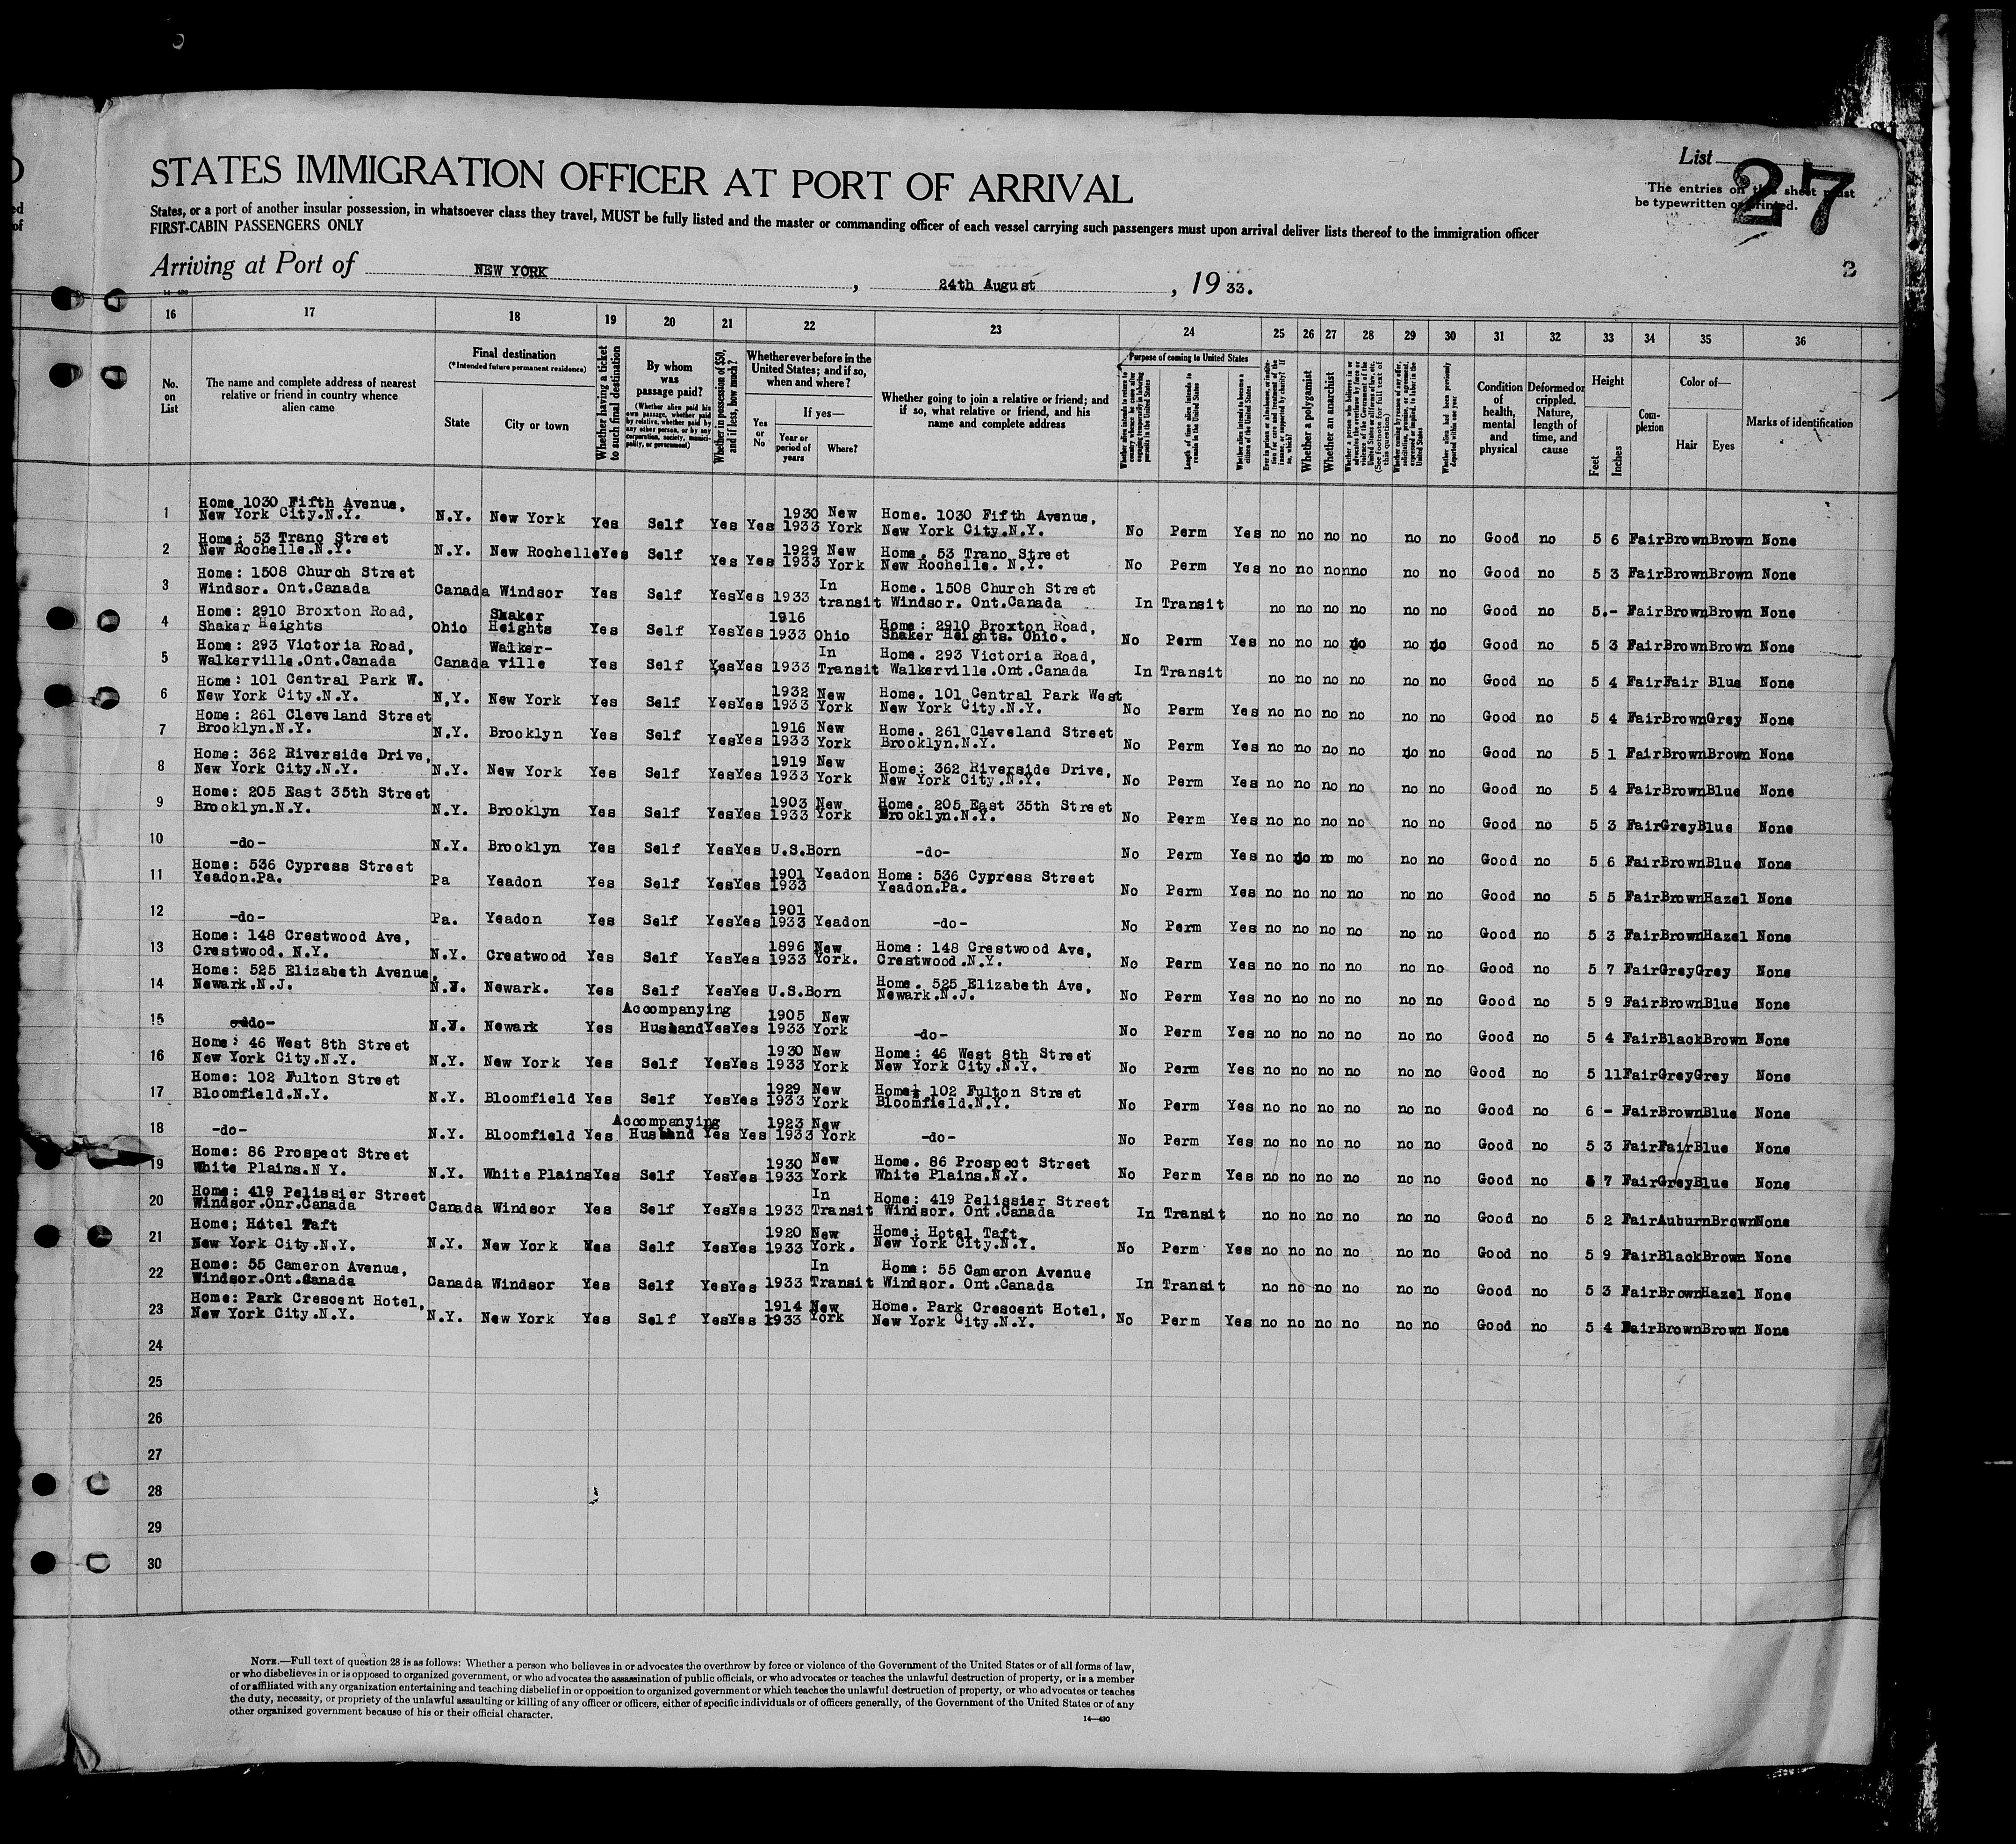 STATES IMMIGRATION OFFICER AT PORT OF ARRIVAL
List 27
The entries on this sheet must
be typewritten or printed.
States, or a port of another insular possession, in whatsoever class they travel, MUST be fully listed and the master or commanding officer of each vessel carrying such passengers must upon arrival deliver lists thereof to the immigration officer
FIRST-CABIN PASSENGERS ONLY
Arriving at Port of NEW YORK, 24th August, 19 33.
16 17 18 19 20 21 22 23 24 25 26 27 28 29 30 31 32 33 34 35 36
No. on List
The name and complete address of nearest relative or friend in country whence alien came
Final destination
(*Intended future permanent residence)
State
City or town
Whether having a ticket to such final destination
By whom was passage paid?
(Whether alien paid his own passage, whether paid by relative, whether paid by any other person, or by any corporation, society, municipality, or government)
Whether in possession of $50, and if less, how much?
Whether ever before in the United States; and if so, when and where?
Yes or No
If yes—
Year or period of years
Where?
Whether going to join a relative or friend; and if so, what relative or friend, and his name and complete address
Purpose of coming to United States
Length of time alien intends to remain in the United States
Whether alien intends to become a citizen of the United States
Whether a polygamist
Whether an anarchist
Condition of health, mental and physical
Deformed or crippled. Nature, length of time, and cause
Height
Feet
Inches
Complexion
Color of—
Hair
Eyes
Marks of identification
1 Home 1030 Fifth Avenue, New York City.N.Y. N.Y. New York Yes Self Yes Yes 1930 1933 New York Home. 1030 Fifth Avenue, New York City.N.Y. No Perm Yes no no no no no no Good no 5 6 Fair Brown Brown None
2 Home: 53 Trano Street New Rochelle.N.Y. N.Y. New Rochelle Yes Self Yes Yes 1929 1933 New York Home. 53 Trano Street New Rochelle. N.Y. No Perm Yes no no no nno no no Good no 5 3 Fair Brown Brown None
3 Home: 1508 Church Street Windsor. Ont.Canada Canada Windsor Yes Self Yes Yes 1933 In transit Home. 1508 Church Street Windsor. Ont.Canada In Transit no no no no no no Good no 5.- Fair Brown Brown None
4 Home: 2910 Broxton Road, Shaker Heights Ohio Shaker Heights Yes Self Yes Yes 1916 1933 Ohio Home: 2910 Broxton Road, Shaker Heights. Ohio. No Perm Yes no no no do no do Good no 5 3 Fair Brown Brown None
5 Home: 293 Victoria Road, Walkerville.Ont.Canada Canada Walker-ville Yes Self Yes Yes 1933 In Transit Home. 293 Victoria Road, Walkerville.Ont.Canada In Transit no no no no no no Good no 5 4 Fair Fair Blue None
6 Home: 101 Central Park W. New York City.N.Y. N.Y. New York Yes Self Yes Yes 1932 1933 New York Home. 101 Central Park West New York City.N.Y. No Perm Yes no no no no no no Good no 5 4 Fair Brown Grey None
7 Home: 261 Cleveland Street Brooklyn.N.Y. N.Y. Brooklyn Yes Self Yes Yes 1916 1933 New York Home. 261 Cleveland Street Brooklyn.N.Y. No Perm Yes no no no no no no Good no 5 1 Fair Brown Brown None
8 Home: 362 Riverside Drive, New York City.N.Y. N.Y. New York Yes Self Yes Yes 1919 1933 New York Home: 362 Riverside Drive, New York City.N.Y. No Perm Yes no no no no no no Good no 5 4 Fair Brown Blue None
9 Home: 205 East 35th Street Brooklyn.N.Y. N.Y. Brooklyn Yes Self Yes Yes 1903 1933 New York Home. 205 East 35th Street Brooklyn.N.Y. No Perm Yes no no no no no no Good no 5 3 Fair Grey Blue None
10 -do- N.Y. Brooklyn Yes Self Yes Yes U.S.Born -do- No Perm Yes no do mo no no Good no 5 6 Fair Brown Blue None
11 Home: 536 Cypress Street Yeadon.Pa. Pa Yeadon Yes Self Yes Yes 1901 1933 Yeadon Home: 536 Cypress Street Yeadon.Pa. No Perm Yes no no no no no no Good no 5 5 Fair Brown Hazel None
12 -do- Pa. Yeadon Yes Self Yes Yes 1901 1933 Yeadon -do- No Perm Yes no no no no no no Good no 5 3 Fair Brown Hazel None
13 Home: 148 Crestwood Ave, Crestwood. N.Y. N.Y. Crestwood Yes Self Yes Yes 1896 1933 New York. Home: 148 Crestwood Ave, Crestwood.N.Y. No Perm Yes no no no no no no Good no 5 7 Fair Grey Grey None
14 Home: 525 Elizabeth Avenue, Newark.N.J. N.J. Newark. Yes Self Yes Yes U.S.Born Home. 525 Elizabeth Ave, Newark.N.J. No Perm Yes no no no no no no Good no 5 9 Fair Brown Blue None
15 -do- N.J. Newark Yes Accompanying Husband Yes Yes 1905 1933 New York -do- No Perm Yes no no no no no no Good no 5 4 Fair Black Brown None
16 Home: 46 West 8th Street New York City.N.Y. N.Y. New York Yes Self Yes Yes 1930 1933 New York Home: 46 West 8th Street New York City.N.Y. No Perm Yes no no no no no no Good no 5 11 Fair Grey Grey None
17 Home: 102 Fulton Street Bloomfield.N.Y. N.Y. Bloomfield Yes Self Yes Yes 1929 1933 New York Home: 102 Fulton Street Bloomfield.N.Y. No Perm Yes no no no no no no Good no 6 - Fair Brown Blue None
18 -do- N.Y. Bloomfield Yes Accompanying Husband Yes Yes 1923 1933 New York -do- No Perm Yes no no no no no no Good no 5 3 Fair Fair Blue None
19 Home: 86 Prospect Street White Plains.N Y. N.Y. White Plains Yes Self Yes Yes 1930 1933 New York Home. 86 Prospect Street White Plains.N.Y. No Perm Yes no no no no no no Good no 5 7 Fair Grey Blue None
20 Home: 419 Pelissier Street Windsor.Onr.Canada Canada Windsor Yes Self Yes Yes 1933 In Transit Home: 419 Pelissier Street Windsor. Ont.Canada In Transit no no no no no no Good no 5 2 Fair Auburn Brown None
21 Home; Hotel Taft New York City.N.Y. N.Y. New York Yes Self Yes Yes 1920 1933 New York. Home: Hotel Taft, New York City.N.Y. No Perm Yes no no no no no no Good no 5 9 Fair Black Brown None
22 Home: 55 Cameron Avenue, Windsor.Ont.Canada Canada Windsor Yes Self Yes Yes 1933 In Transit Home: 55 Cameron Avenue Windsor. Ont.Canada In Transit no no no no no no Good no 5 3 Fair Brown Hazel None
23 Home: Park Crescent Hotel, New York City.N.Y. N.Y. New York Yes Self Yes Yes 1914 1933 New York Home. Park Crescent Hotel, New York City.N.Y. No Perm Yes no no no no no no Good no 5 4 Fair Brown Brown None
24
25
26
27
28
29
30
NOTE.—Full text of question 28 is as follows: Whether a person who believes in or advocates the overthrow by force or violence of the Government of the United States or of all forms of law,
or who disbelieves in or is opposed to organized government, or who advocates the assassination of public officials, or who advocates or teaches the unlawful destruction of property, or is a member
of or affiliated with any organization entertaining and teaching disbelief in or opposition to organized government or which teaches the unlawful destruction of property, or who advocates or teaches
the duty, necessity, or propriety of the unlawful assaulting or killing of any officer or officers, either of specific individuals or of officers generally, of the Government of the United States or of any
other organized government because of his or their official character.
14—430